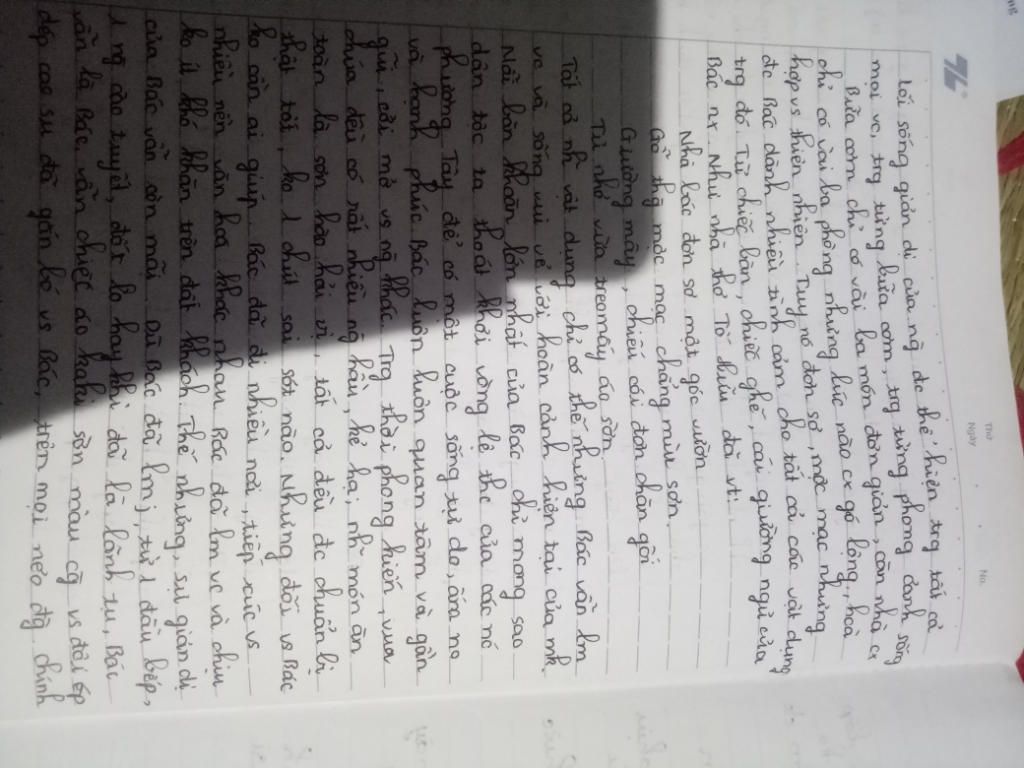 Thứ
Ngày
No.
Lối sống giản dị của ng đc thể hiện trg tất cả
mọi vc, trg từng bữa cơm, trg từng phong cách sống
Bữa cơm chỉ có vài ba món đơn giản, căn nhà cx
chỉ có vài ba phòng nhưng lúc nào cx gó lông, hoà
hợp vs thiên nhiên. Tuy nó đơn sơ, mộc mạc nhưng
đc Bác dành nhiều tình cảm cho tất cả các vật dụng
trg đó. Từ chiếc bàn, chiếc ghế, cái giường ngủ của
Bác nx. Như nhà thơ Tố Hữu đã vt:
Nhà lác đơn sơ một góc vườn
Gỗ thg mộc mạc chẳng mùi sơn
Giường mây, chiếu cói đơn chăn gối
Tủ nhỏ vừa treo mấy áo sờn
Tất cả nh~ vật dụng chỉ có thế nhưng Bác vẫn lm
vc và sống vui vẻ với hoàn cảnh hiện tại của mk.
Nỗi băn khoăn lớn nhất của Bác chỉ mong sao
dân tộc ta thoát khỏi vòng lệ thc của các nc
phương Tây để có một cuộc sống tự do, ấm no
và hạnh phúc. Bác luôn luôn quan tâm và gần
gũi, cởi mở vs ng khác. Trg thời phong kiến, vua
chúa đều có rất nhiều ng hầu, kẻ hạ, nh~ món ăn
toàn là sơn hào hải vị, tất cả đều đc chuẩn bị
thật tốt, ko 1 chút sai sót nào. Nhưng đối vs Bác
ko cần ai giúp. Bác đã đi nhiều nơi, tiếp xúc vs
nhiều nền văn hoá khác nhau. Bác đã lm vc và chịu
ko ít khó khăn trên đất khách. Thế nhưng, sự giản dị
của Bác vẫn còn mãi. Dù Bác đã lm j, từ 1 đầu bếp,
1 ng cào tuyết, đốt lò hay khi đã là lãnh tụ, Bác
vẫn là Bác, vẫn chiếc áo kaki sờn màu cũ vs đôi ép
dép cao su đã gắn bó vs Bác, trên mọi nẻo đg chinh